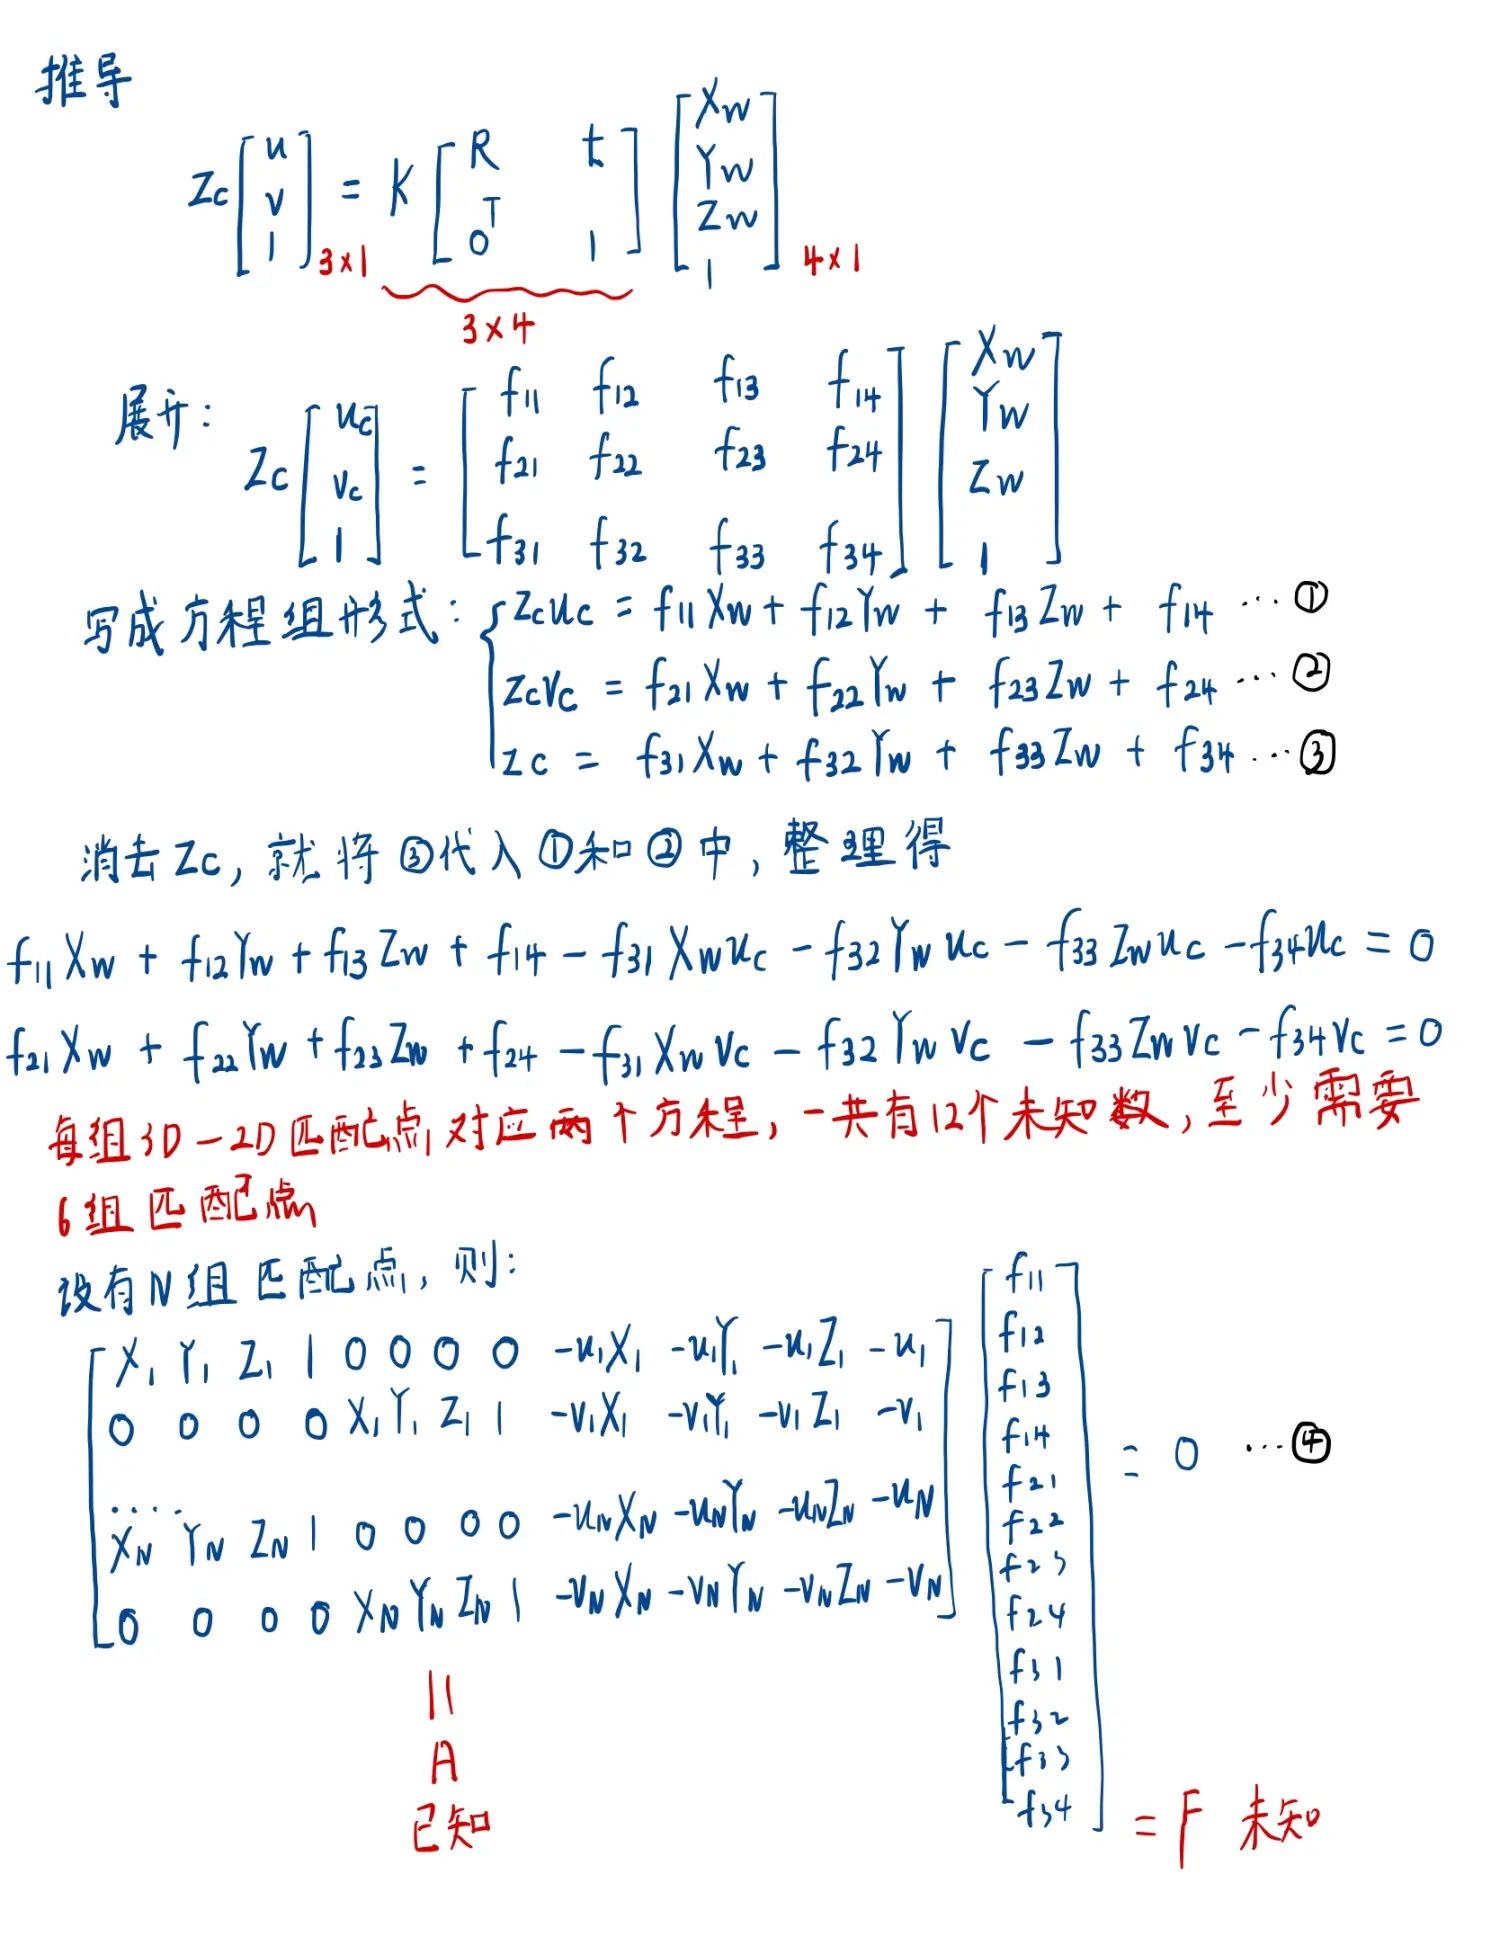 推导
Zc [u v 1] 3×1 = K [R t 0^T 1] [Xw Yw Zw 1] 4×1
3×4
展开: Zc [uc vc 1] = [f11 f12 f13 f14 f21 f22 f23 f24 f31 f32 f33 f34] [Xw Yw Zw 1]
写成方程组形式: { Zcuc = f11Xw + f12Yw + f13Zw + f14 … ①
Zcvc = f21Xw + f22Yw + f23Zw + f24 … ②
Zc = f31Xw + f32Yw + f33Zw + f34 … ③
消去Zc, 就将③代入①和②中, 整理得
f11Xw + f12Yw + f13Zw + f14 - f31Xwuc - f32Ywuc - f33Zwuc - f34uc = 0
f21Xw + f22Yw + f23Zw + f24 - f31Xwvc - f32Ywvc - f33Zwvc - f34vc = 0
每组3D-2D匹配点对应两个方程, 一共有12个未知数, 至少需要
6组匹配点
设有N组匹配点, 则:
[X1 Y1 Z1 1 0 0 0 0 -u1X1 -u1Y1 -u1Z1 -u1
0 0 0 0 X1 Y1 Z1 1 -v1X1 -v1Y1 -v1Z1 -v1
.....
XN YN ZN 1 0 0 0 0 -uNXN -uNYN -uNZN -uN
0 0 0 0 XN YN ZN 1 -vNXN -vNYN -vNZN -vN]
[f11
f12
f13
f14
f21
f22
f23
f24
f31
f32
f33
f34]
= 0 … ④
||
A
已知
= F 未知